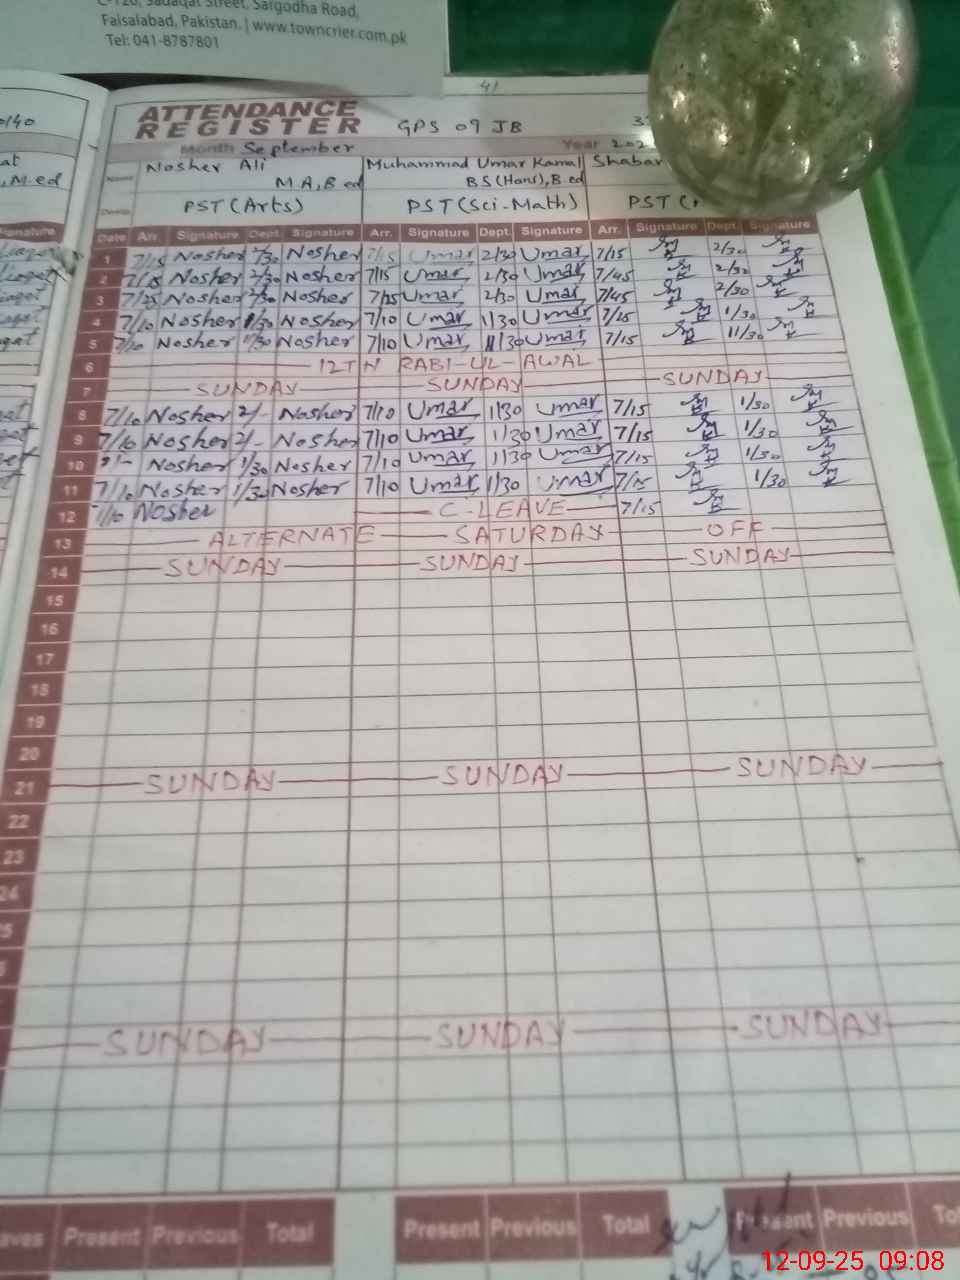 C-120, Sadaqat Street, Sargodha Road,
Faisalabad, Pakistan. | www.towncrier.com.pk
Tel: 041-8787801
41
ATTENDANCE
REGISTER GPS 09 JB
Month September Year
Name Nosher Ali Muhammad Umar Kamal
M.A, B ed BS (Hons), B.ed
M.ed
Desig. PST (Arts) PST (Sci-Math) PST
Signature Date Arr. Signature Dept. Signature Arr. Signature Dept. Signature Arr. Signature Dept. Signature
1 7/15 Nosher 2/30 Nosher 7/15 Umar 2/30 Umar 7/15 2/30
2 7/15 Nosher 2/30 Nosher 7/15 Umar 2/30 Umar 7/45 2/30
3 7/25 Nosher 2/30 Nosher 7/25 Umar 2/30 Umar 7/45 2/30
4 7/10 Nosher 1/30 Nosher 7/10 Umar 1/30 Umar 7/15 1/30
5 7/10 Nosher 1/30 Nosher 7/10 Umar 1/30 Umar 7/15 11/30
6 12TH RABI-UL-AWAL
7 SUNDAY SUNDAY SUNDAY
8 7/10 Nosher 2/- Nosher 7/10 Umar 1/30 Umar 7/15 1/30
9 7/10 Nosher 2/- Nosher 7/10 Umar 1/30 Umar 7/15 1/30
10 Nosher 1/30 Nosher 7/10 Umar 1/30 Umar 7/15 1/30
11 7/10 Nosher 1/30 Nosher 7/10 Umar 1/30 Umar 7/15 1/30
12 7/10 Nosher C-LEAVE 7/15
13 ALTERNATE SATURDAY OFF
14 SUNDAY SUNDAY SUNDAY
15
16
17
18
19
20
21 SUNDAY SUNDAY SUNDAY
22
23
24
SUNDAY SUNDAY SUNDAY
Present Previous Total Present Previous Total Present Previous
12-09-25 09:08